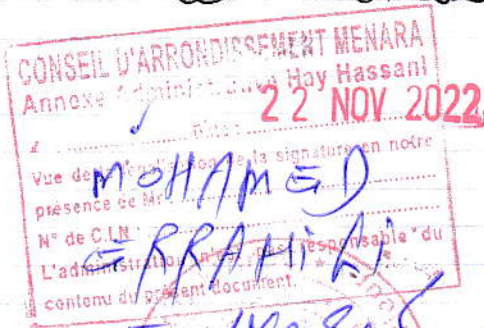 CONSEIL D'ARRONDISSEMENT MENARA
Annexe Administrative Hay Hassani
22 NOV 2022
Vue de la signature en notre
MOHAMED
présence de Mr
N° de C.I.N
ERRAHILI
L'administration n'est pas responsable du
contenu du présent document.